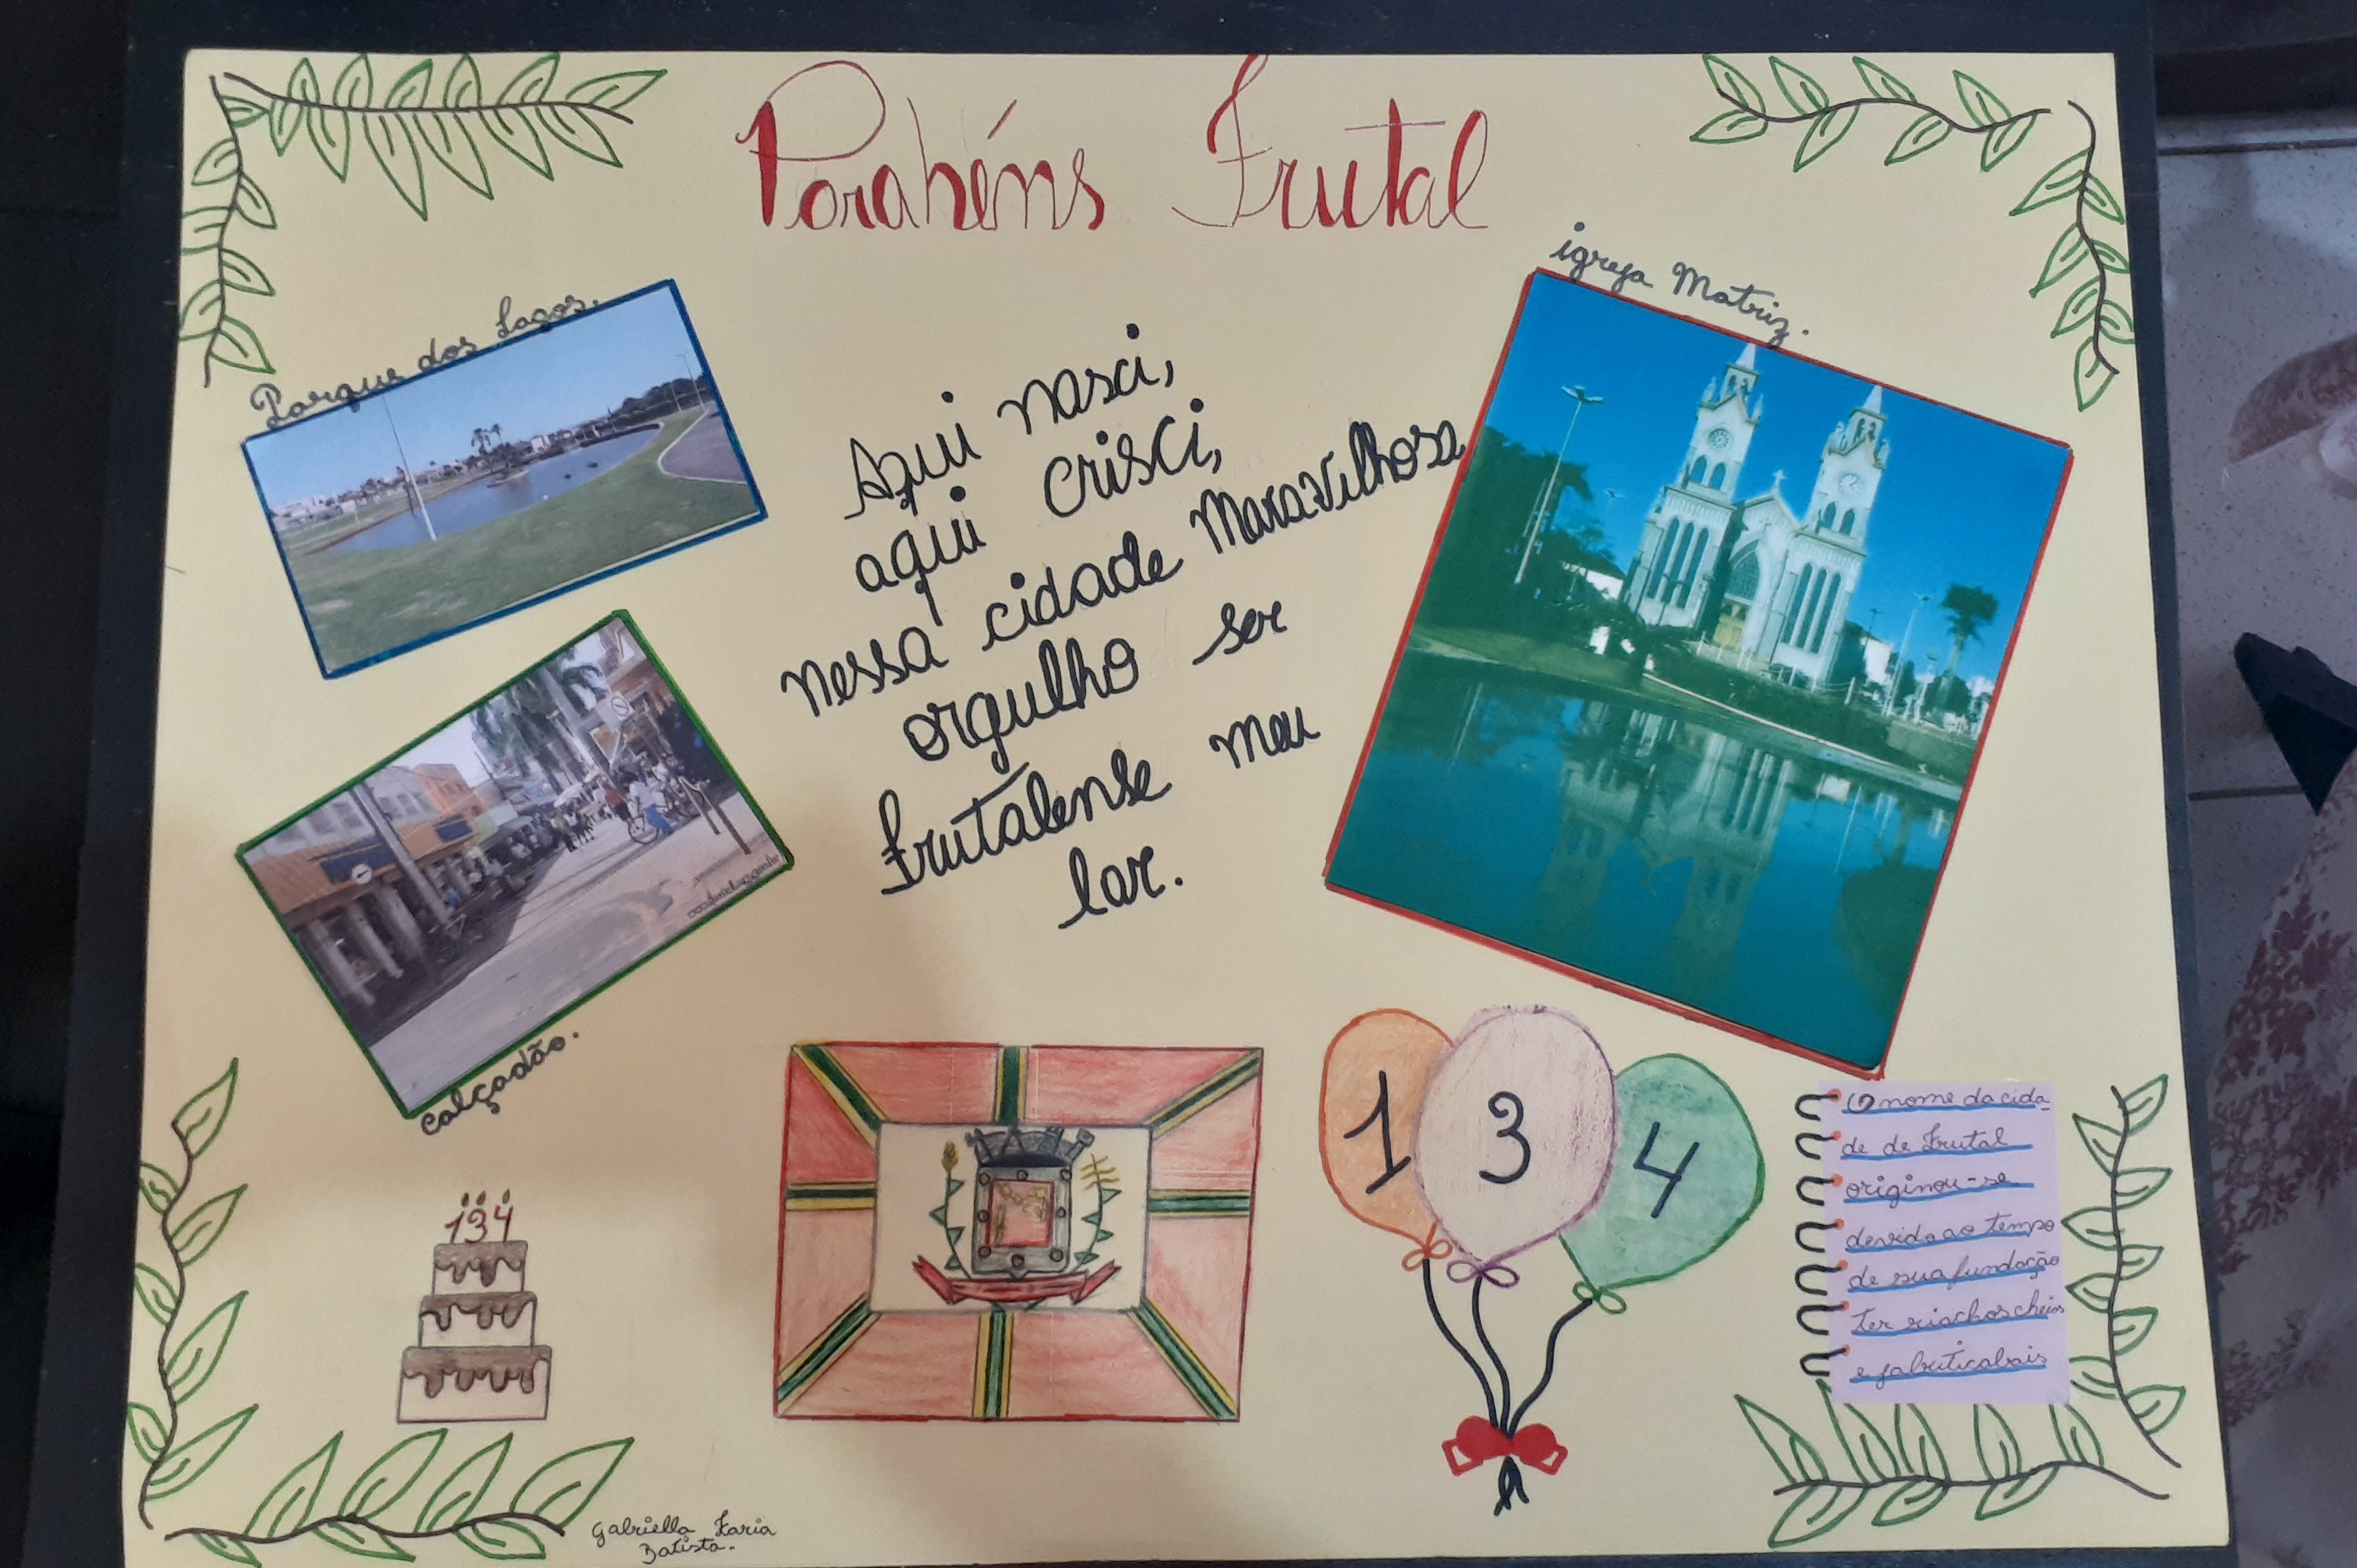 Parabéns Frutal
igreja Matriz.
Parque dos Lagos.
Aqui nasci,
aqui crisci,
nessa cidade Maravilhosa
orgulho ser
frutalense meu
lar.
calçadão.
134
1 3 4
O nome da cida_
de de Frutal
originou-se
devido ao tempo
de sua fundação
ter riachos cheios
e jabuticabais
Gabriella Faria
Batista.